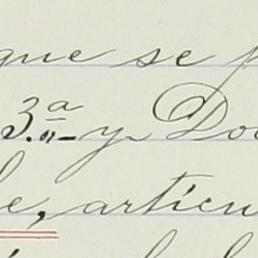 que se p
3.ª y Do
e, articu